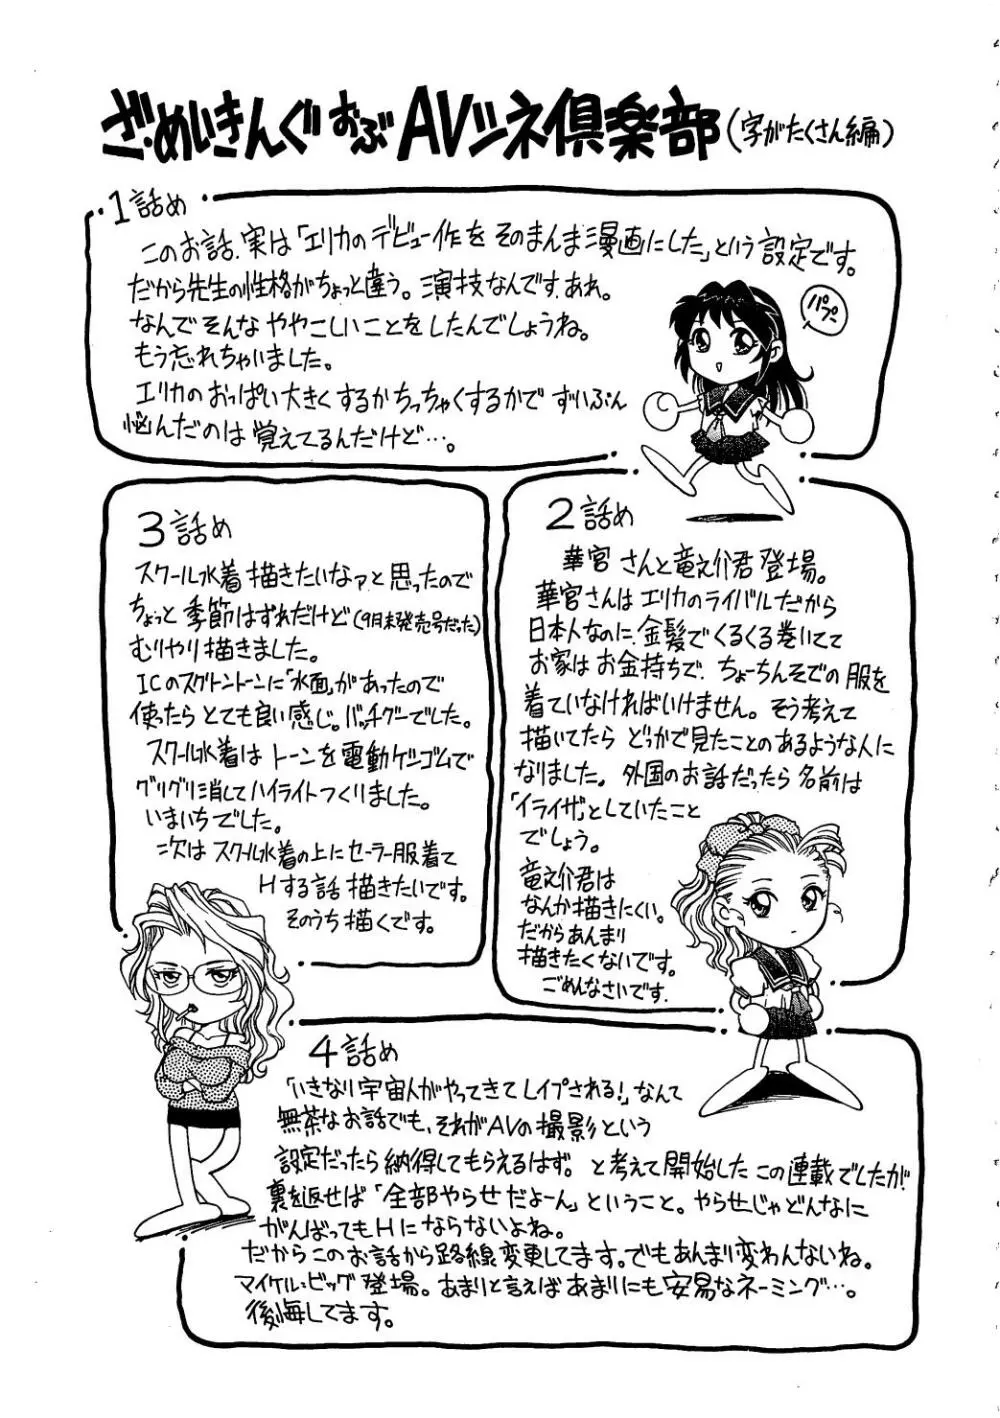 ざ・めいきんぐ おぶ AVツネ倶楽部(字がたくさん編)
1話め
このお話、実は「エリカのデビュー作をそのまんま漫画にした」という設定です。
だから先生の性格がちょっと違う。演技なんです、あれ。
なんでそんなややこしいことをしたんでしょうね。
もう忘れちゃいました。
エリカのおっぱい大きくするかちっちゃくするかでずいぶん
悩んだのは覚えてるんだけど…。
パプー
2話め
華宮さんと竜之介君登場。
華宮さんはエリカのライバルだから
日本人なのに、金髪でくるくる巻いてて
お家はお金持ちで、ちょーちんそでの服を
着ていなければいけません。そう考えて
描いてたらどっかで見たことのあるような人に
なりました。外国のお話だったら名前は
「イライザ」としていたこと
でしょう。
竜之介君は
なんか描きにくい。
だからあんまり
描きたくないです。
ごめんなさいです。
3話め
スクール水着描きたいなァと思ったので
ちょっと季節はずれだけど(9月末発売号だった)
むりやり描きました。
ICのスクリーントーンに「水面」があったので
使ったらとても良い感じ。バッチグーでした。
スクール水着はトーンを電動ケシゴムで
グリグリ消してハイライトつくりました。
いまいちでした。
次はスクール水着の上にセーラー服着て
Hする話描きたいです。
そのうち描くです。
4話め
「いきなり宇宙人がやってきてレイプされる!」なんて
無茶なお話でも、それがAVの撮影という
設定だったら納得してもらえるはず。と考えて開始したこの連載でしたが!
裏を返せば「全部やらせだよーん」ということ。やらせじゃどんなに
がんばってもHにならないよね。
だからこのお話から路線変更してます。でもあんまり変わんないね。
マイケル・ビッグ登場。あまりと言えばあまりにも安易なネーミング…。
後悔してます。